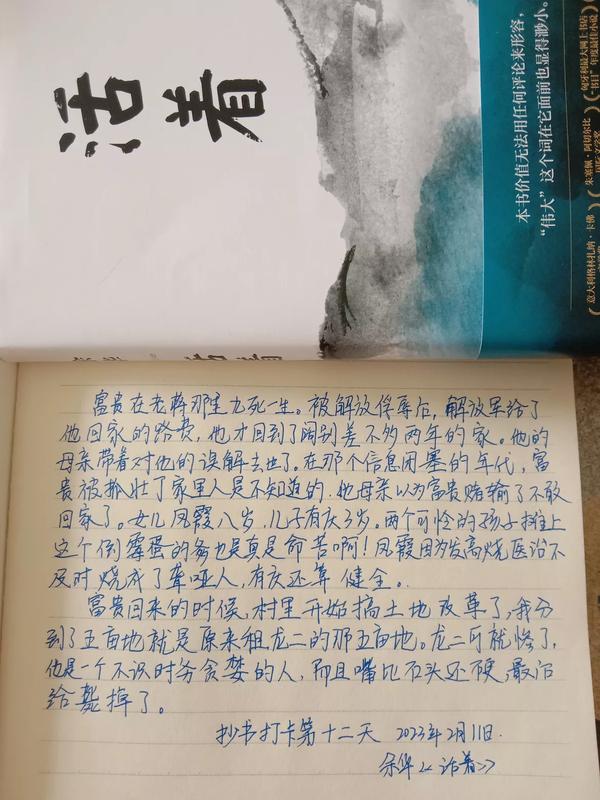 活着
本书价值无法用任何评论来形容，
“伟大”这个词在它面前也显得渺小。
（意大利格林扎纳·卡佛
（朱塞佩·阿切尔比
国际文学奖
（匈牙利最大网上书店
“书目”年度最佳小说
富贵在老蒋那里九死一生。被解放俘辱后，解放军给了
他回家的路费，他才回到了阔别差不多两年的家。他的
母亲带着对他的误解去世了。在那个信息闭塞的年代，富
贵被抓壮丁家里人是不知道的，他母亲以为富贵赌输了不敢
回家了。女儿凤霞八岁，儿子有庆3岁。两个可怜的孩子摊上
这个倒霉蛋的爹也是真是命苦啊！凤霞因为发高烧医治不
及时烧成了聋哑人，有庆还算健全。
富贵回来的时候，村里开始搞土地改革了，我分
到了五亩地就是原来租龙二的那五亩地。龙二可就惨了，
他是一个不识时务贪婪的人，而且嘴比石头还硬，最后
给毙掉了。
抄书打卡第十二天 2023年2月11日.
余华《活着》